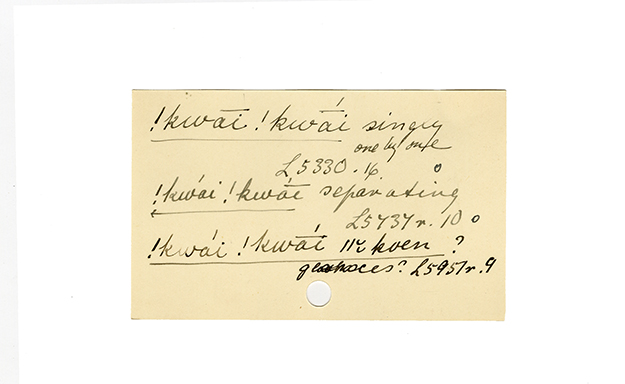 !kwāī !kwāí singly
one by one
L 5330.16.
!kwái !kwāí separating
L5737 r. 10
!kwái !kwāí koen ?
L5951 r. 9